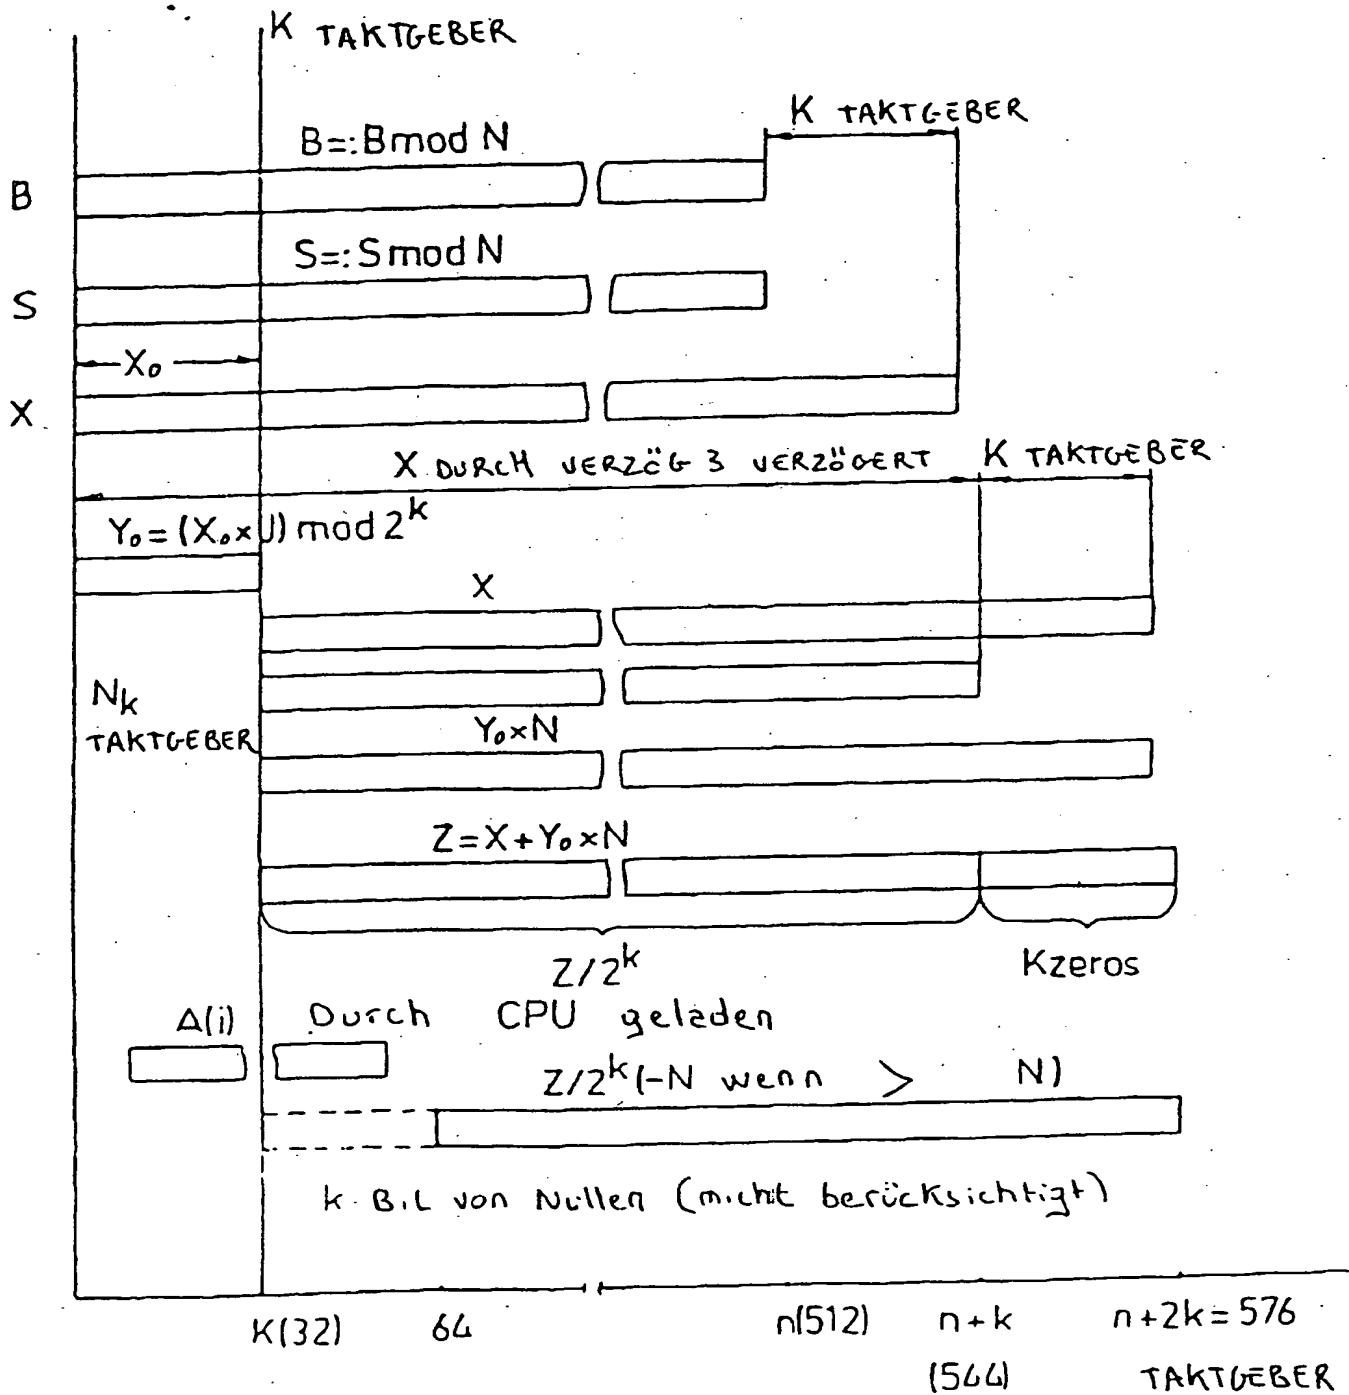 K TAKTGEBER
K TAKTGEBER
B=:Bmod N
B
S=:Smod N
S
X₀
X
X DURCH VERZÖG 3 VERZÖGERT
K TAKTGEBER
Y₀=(X₀×J) mod 2ᵏ
X
Nk
TAKTGEBER
Y₀×N
Z=X+Y₀×N
Z/2ᵏ
Kzeros
A(i)
Durch CPU geladen
Z/2ᵏ(-N wenn > N)
k Bit von Nullen (nicht berücksichtigt)
K(32)
64
n(512)
n+k
n+2k=576
(544)
TAKTGEBER